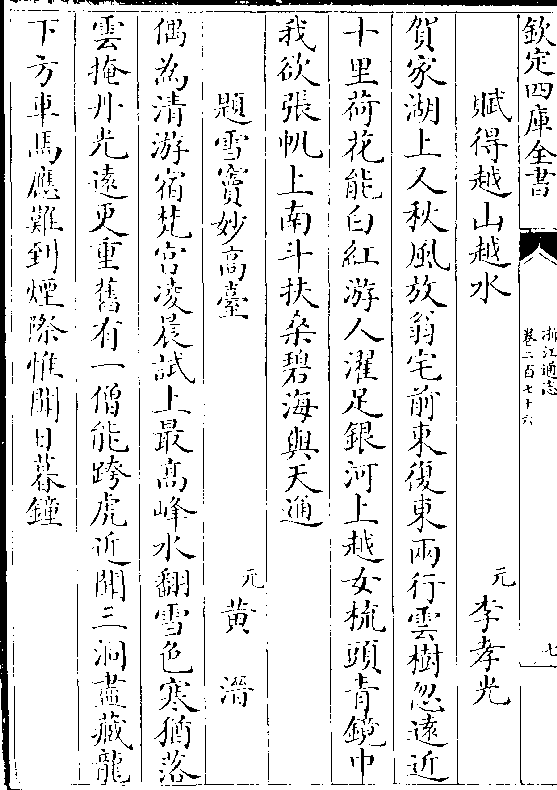 欽定四庫全書
浙江通志
卷二百七十六
七
賦得越山越水
元 李孝光
賀家湖上又秋風放翁宅前東復東兩行雲樹忽遠近
十里荷花能白紅游人濯足銀河上越女梳頭青鏡中
我欲張帆上南斗扶桑碧海與天通
題雪竇妙高臺
元 黄 溍
偶為清游宿梵宫凌晨試上最髙峰水翻雪色寒猶落
雲掩丹光遠更重舊有一僧能跨虎近聞三洞盡藏龍
下方車馬應難到煙際惟聞日暮鐘